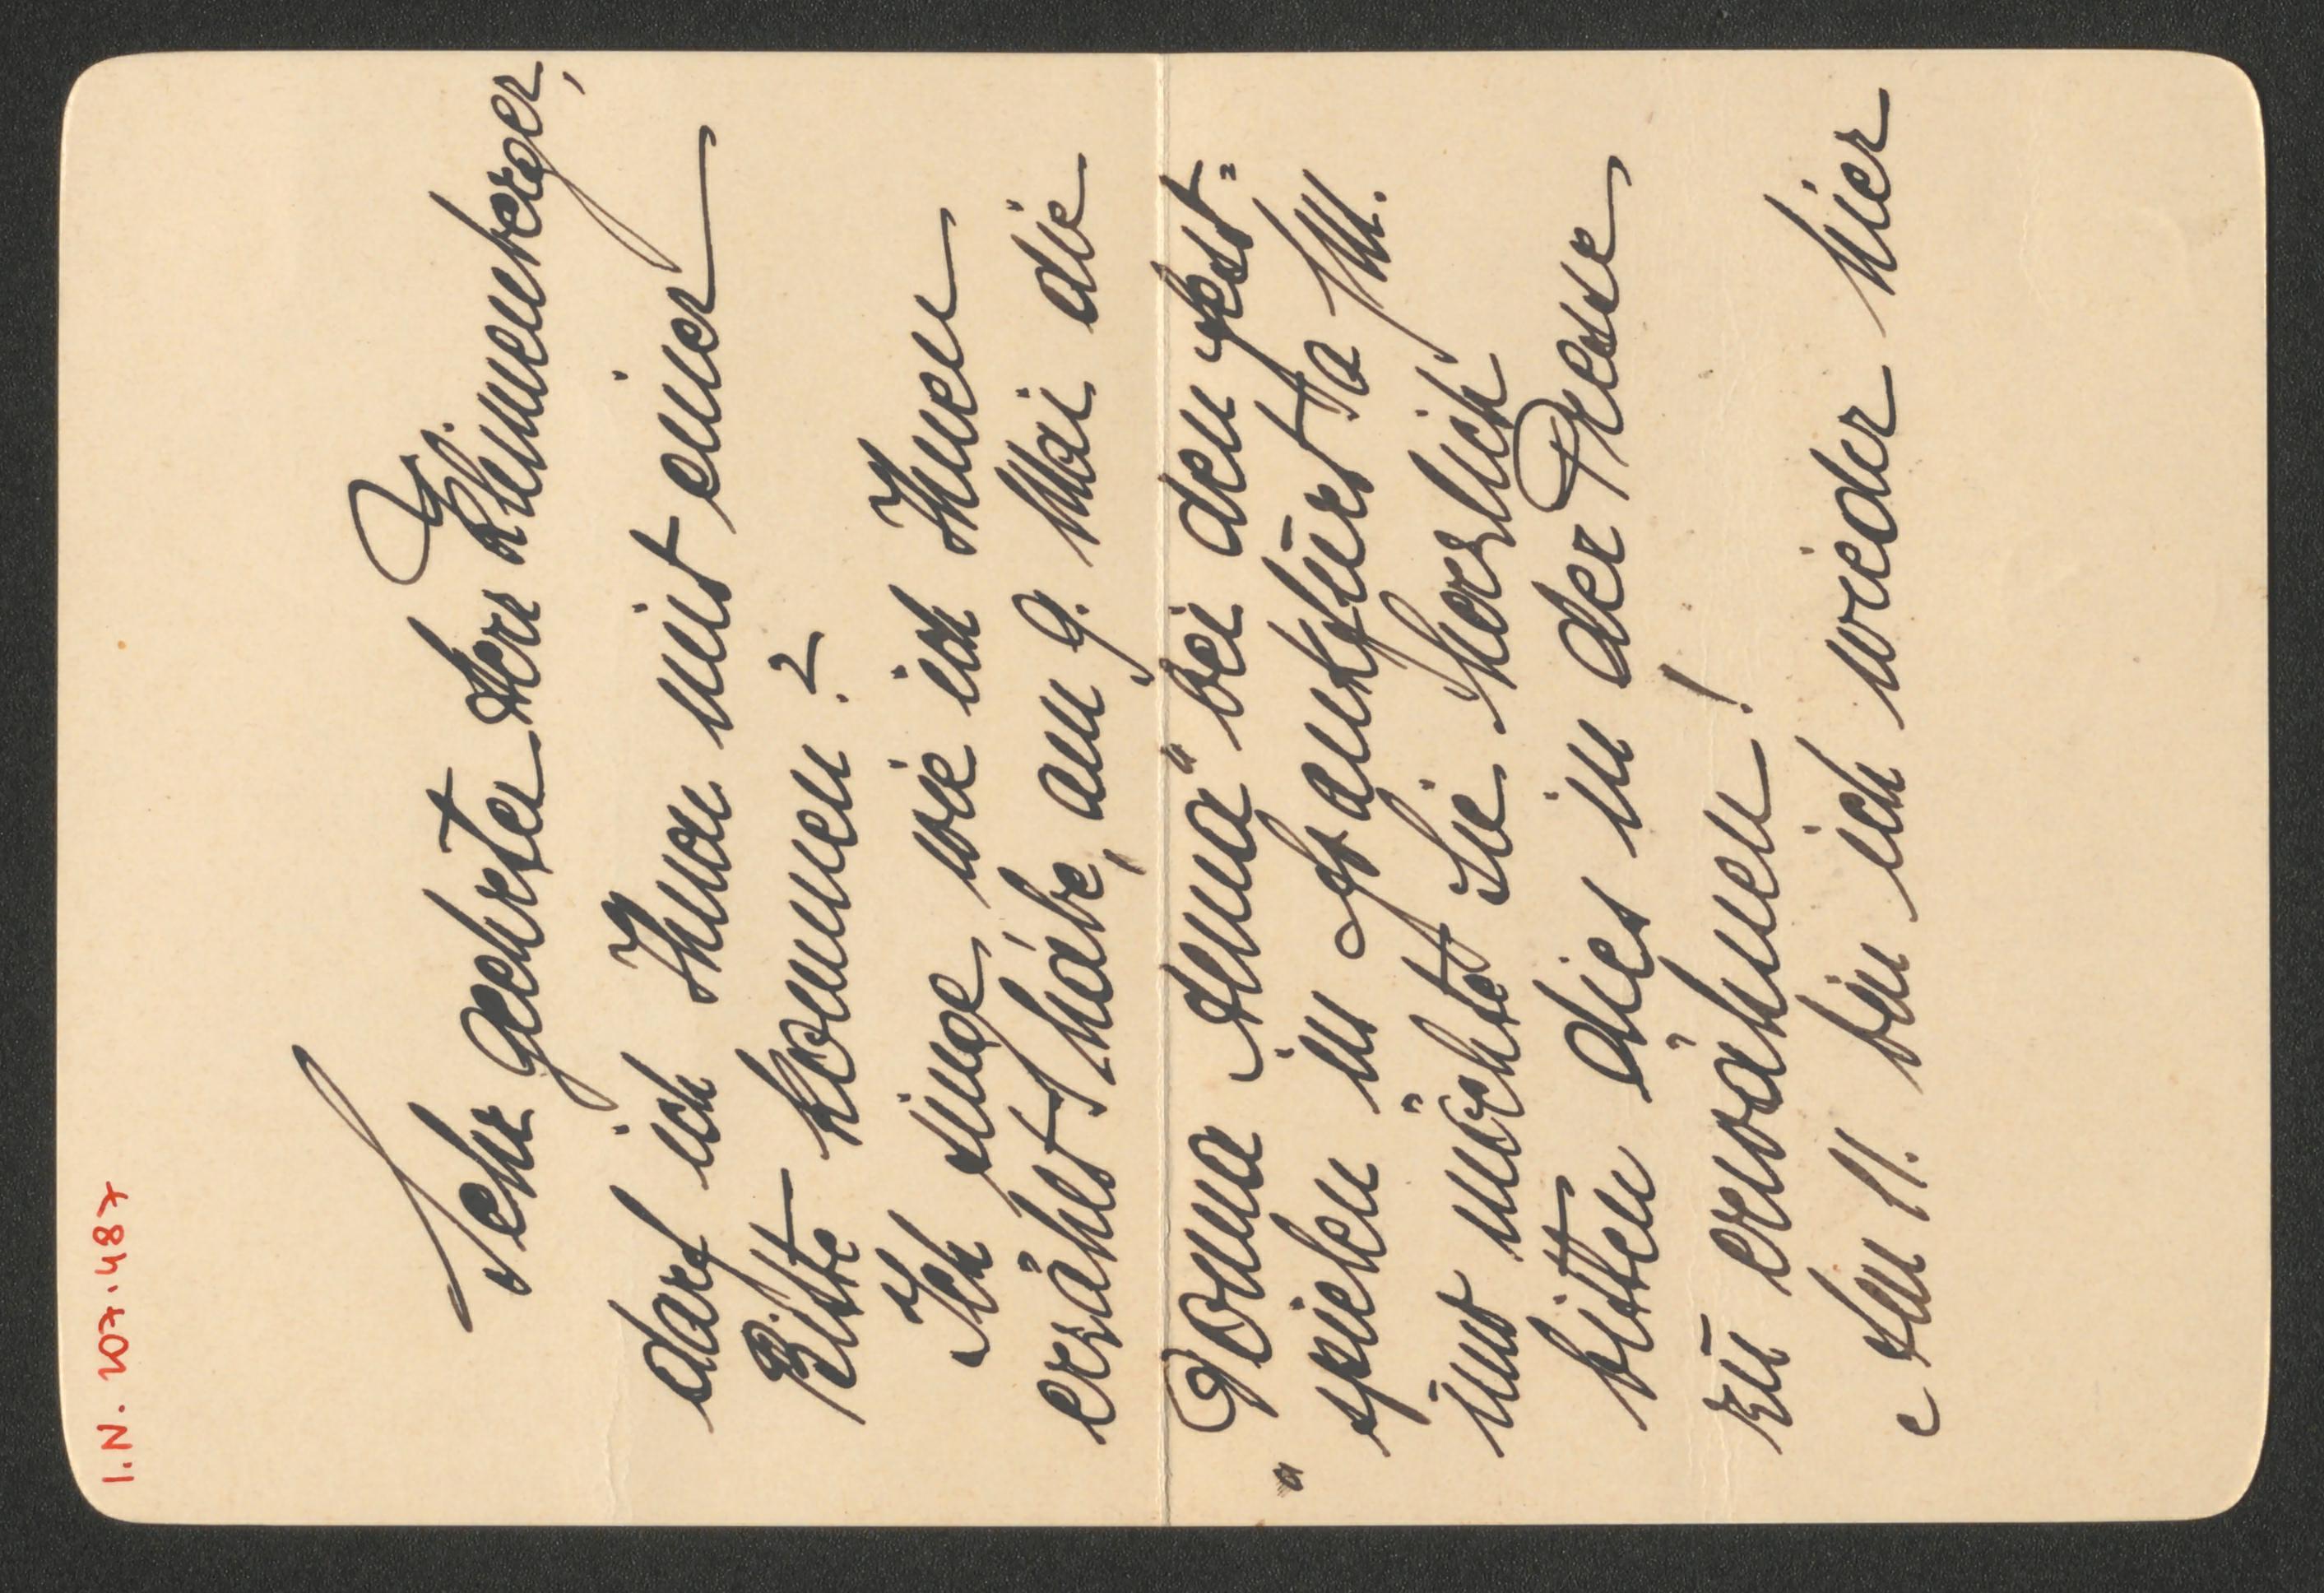 I.N. 207.487
Sehr geehrter Herr Blumenberger,
darf ich Ihnen mit einer
Bitte kommen?
Ich singe, wie ich Ihnen
erzählt habe, am 9. Mai die
"Donna Anna" bei den Fest-
spielen in Frankfurt a/M.
und möchte Sie herzlich
bitten dies in der Presse
zu erwähnen!
Am 11. bin ich wieder hier